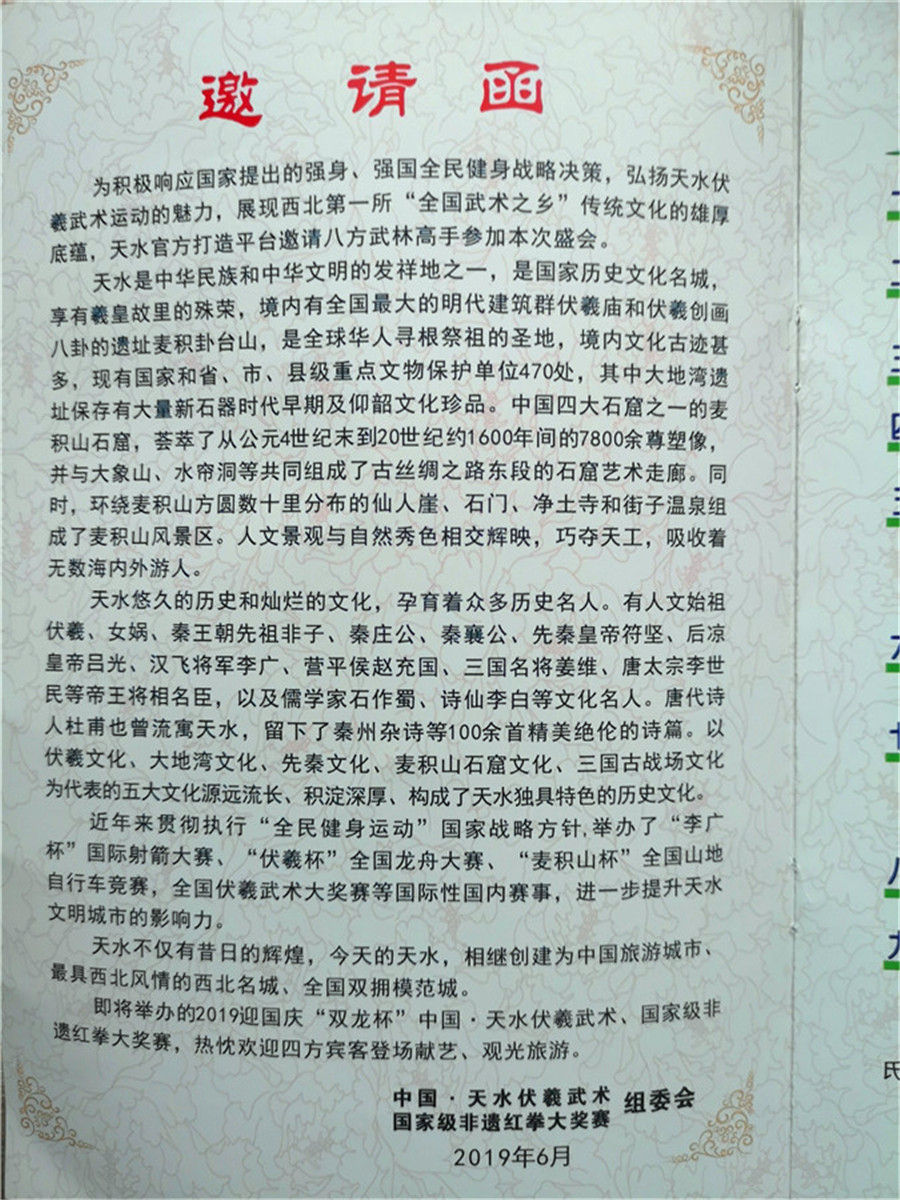 邀请函
为积极响应国家提出的强身、强国全民健身战略决策，弘扬天水伏
羲武术运动的魅力，展现西北第一所“全国武术之乡”传统文化的雄厚
底蕴，天水官方打造平台邀请八方武林高手参加本次盛会。
天水是中华民族和中华文明的发祥地之一，是国家历史文化名城，
享有羲皇故里的殊荣，境内有全国最大的明代建筑群伏羲庙和伏羲创画
八卦的遗址麦积卦台山，是全球华人寻根祭祖的圣地，境内文化古迹甚
多，现有国家和省、市、县级重点文物保护单位470处，其中大地湾遗
址保存有大量新石器时代早期及仰韶文化珍品。中国四大石窟之一的麦
积山石窟，荟萃了从公元4世纪末到20世纪约1600年间的7800余尊塑像，
并与大象山、水帘洞等共同组成了古丝绸之路东段的石窟艺术走廊。同
时，环绕麦积山方圆数十里分布的仙人崖、石门、净土寺和街子温泉组
成了麦积山风景区。人文景观与自然秀色相交辉映，巧夺天工，吸收着
无数海内外游人。
天水悠久的历史和灿烂的文化，孕育着众多历史名人。有人文始祖
伏羲、女娲、秦王朝先祖非子、秦庄公、秦襄公、先秦皇帝符坚、后凉
皇帝吕光、汉飞将军李广、营平侯赵充国、三国名将姜维、唐太宗李世
民等帝王将相名臣，以及儒学家石作蜀、诗仙李白等文化名人。唐代诗
人杜甫也曾流寓天水，留下了秦州杂诗等100余首精美绝伦的诗篇。以
伏羲文化、大地湾文化、先秦文化、麦积山石窟文化、三国古战场文化
为代表的五大文化源远流长、积淀深厚、构成了天水独具特色的历史文化。
近年来贯彻执行“全民健身运动”国家战略方针,举办了“李广
杯”国际射箭大赛、“伏羲杯”全国龙舟大赛、“麦积山杯”全国山地
自行车竞赛，全国伏羲武术大奖赛等国际性国内赛事，进一步提升天水
文明城市的影响力。
天水不仅有昔日的辉煌，今天的天水，相继创建为中国旅游城市、
最具西北风情的西北名城、全国双拥模范城。
即将举办的2019迎国庆“双龙杯”中国·天水伏羲武术、国家级非
遗红拳大奖赛，热忱欢迎四方宾客登场献艺、观光旅游。
中国·天水伏羲武术
国家级非遗红拳大奖赛 组委会
2019年6月